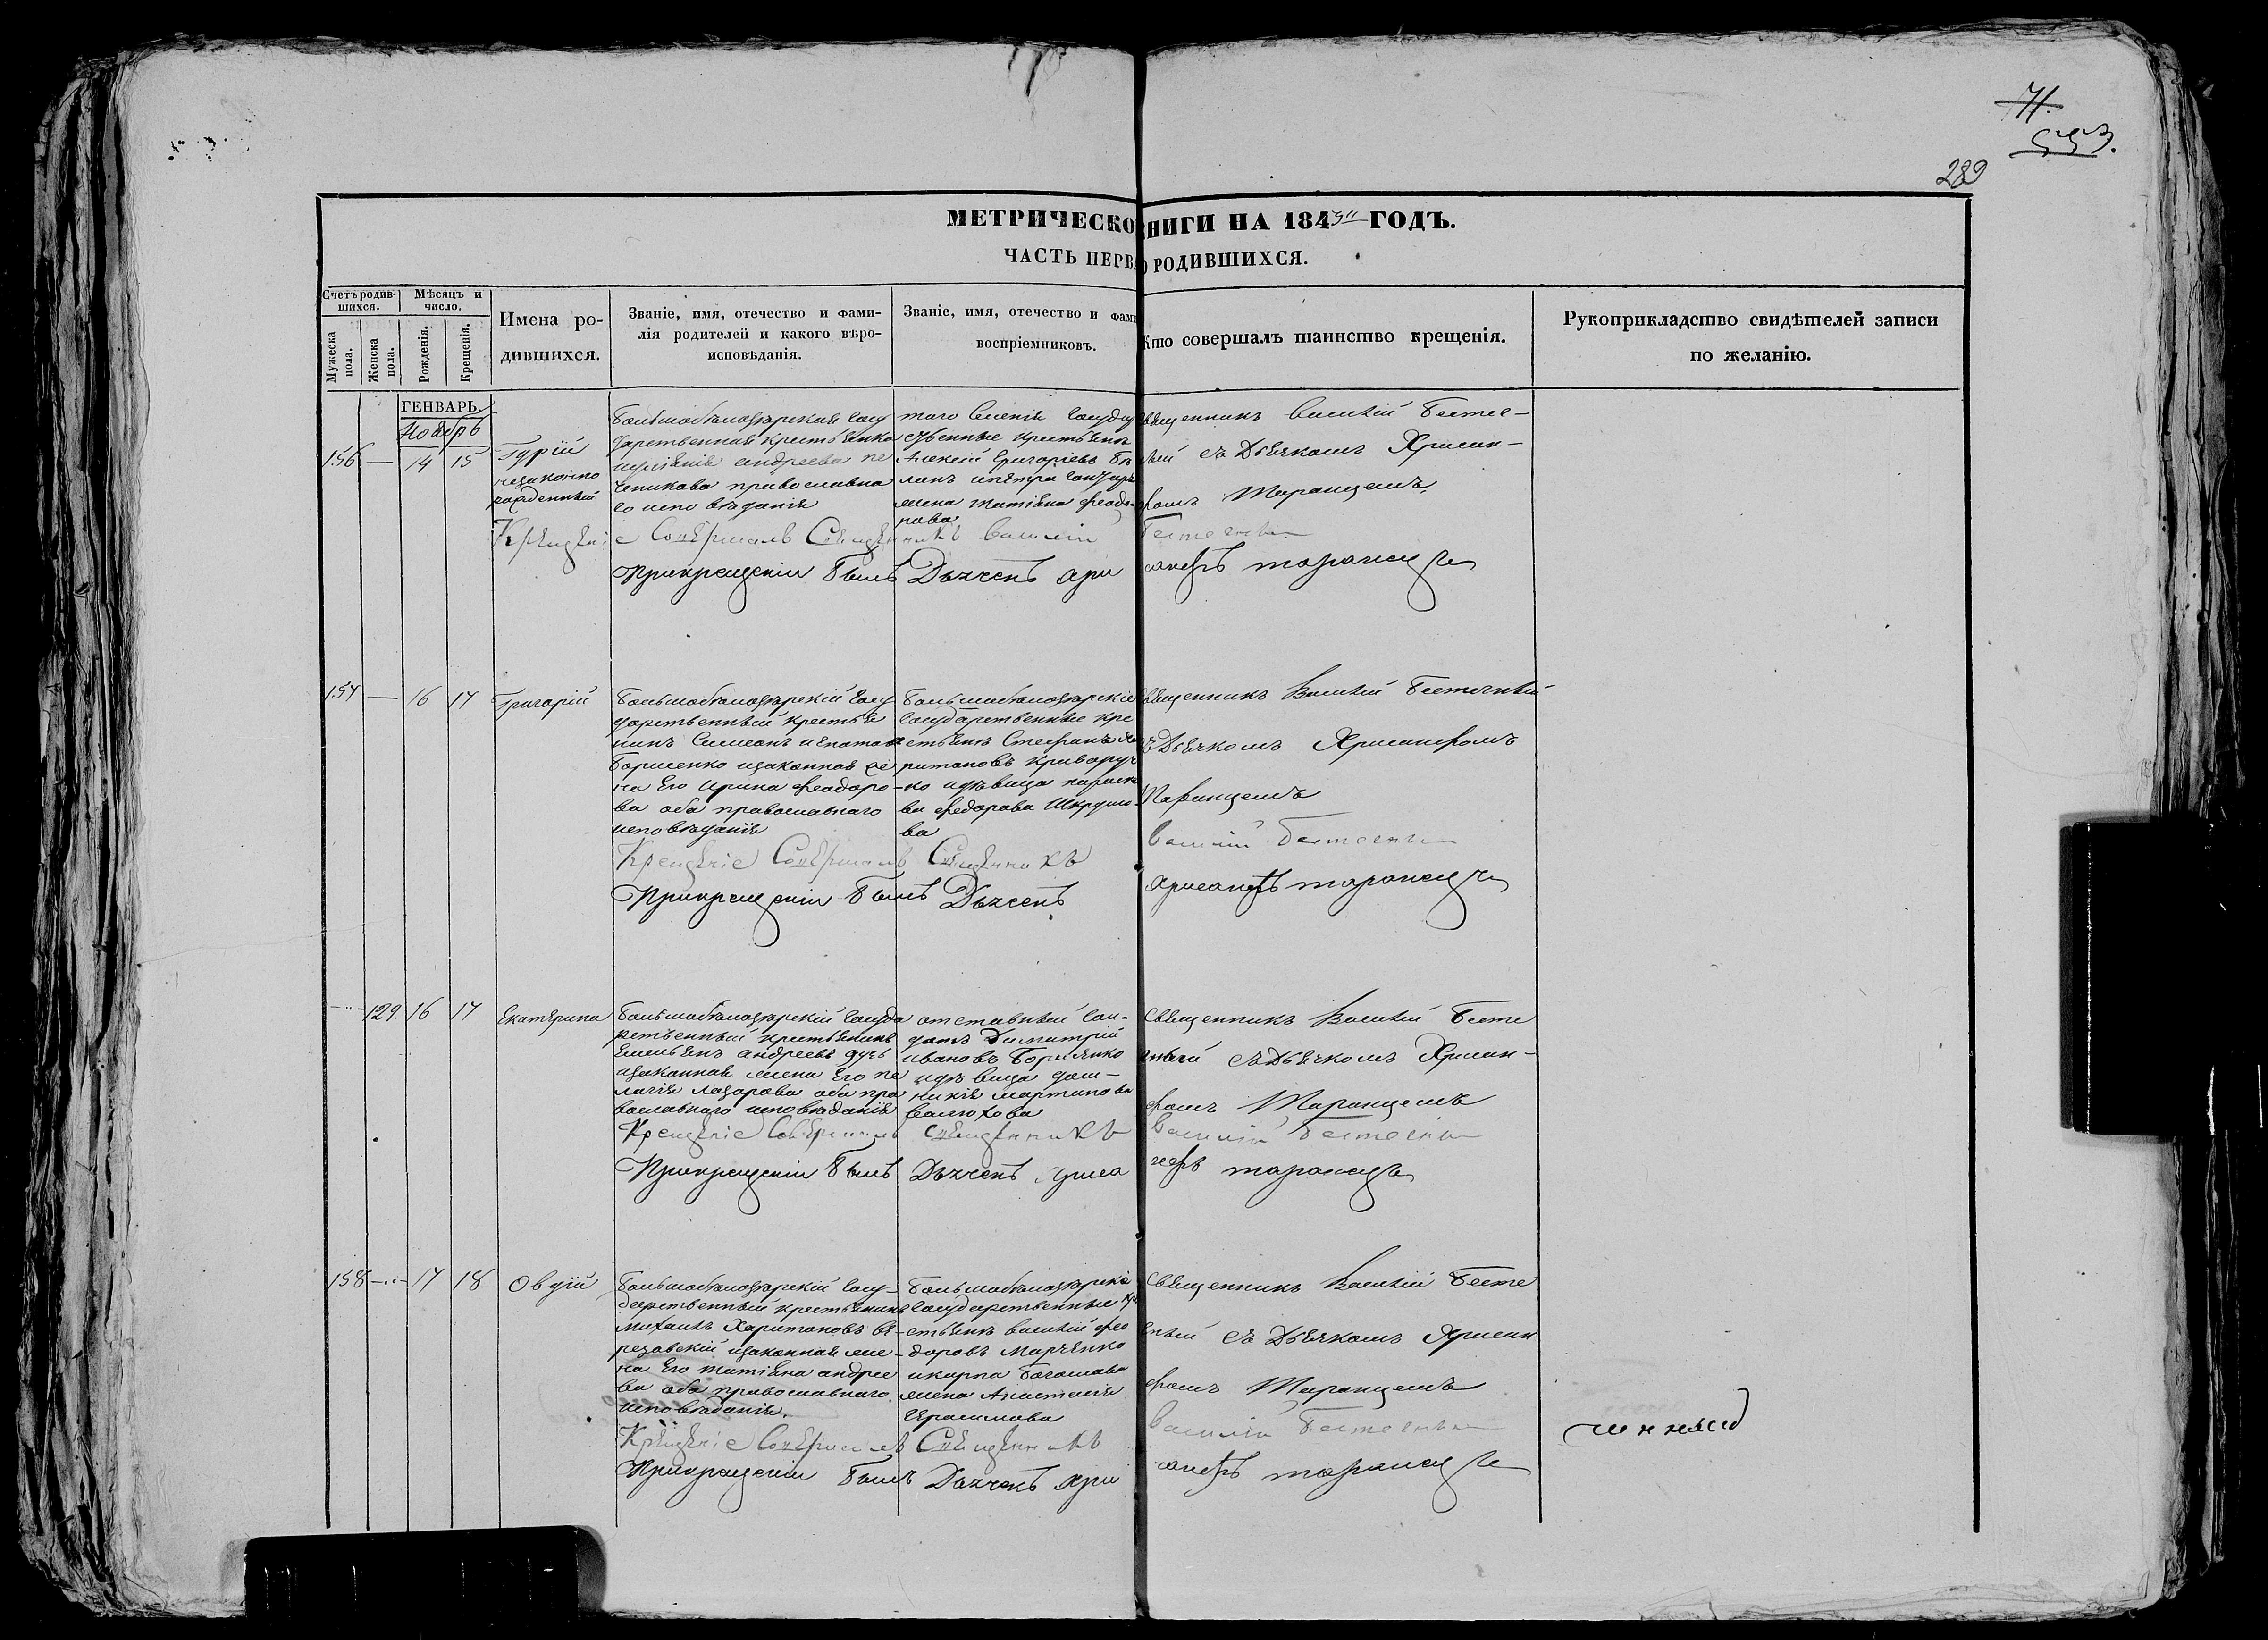 71.
553.
289
МЕТРИЧЕСКО НИГИ НА 1843 ГОДЪ.
ЧАСТЬ ПЕРВА О РОДИВШИХСЯ.
Счетъ родившихся.
Мужеска пола.
Женска пола.
Мѣсяцъ и число.
Рожденія.
Крещенія.
Имена родившихся.
Званіе, имя, отечество и фами-
лія родителей и какого вѣро-
исповѣданія.
Званіе, имя, отечество и фами
воспріемниковъ.
Кто совершалъ таинство крещенія.
Рукоприкладство свидѣтелей записи
по желанію.
ГЕНВАРЬ.
Ноябрь
156 — 14 15
Гурій
незаконно
рожденный
Большобѣлозѣрская госу
дарственная крестьянка
андреева
православна
го исповѣданія
того селенія государ
ственные крестьяне
Алексѣй Григоріевъ
жена татіяна феодо
рова
священникъ Василій Бесте-
ный съ Дьячкомъ Хрисан-
фомъ Таранцемъ
Крещеніе Совершалъ Священникъ Василій
При крещеніи былъ Дьячекъ Хри санфъ таранец
157 — 16 17 Григорій
Большобѣлозѣрскій госу
дарственный крестья
нинъ Симеонъ
Борисенко и законная же
на его Ирина феодоро-
ва оба православнаго
исповѣданія
Большобѣлозѣрскіе
государственные кре
стьяне Стефанъ Ха
ритоновъ Криворуч
ко и дѣвица параске
ва федорова
ва
священникъ Василій
съ Дьячкомъ Хрисанфомъ
Таранцемъ
Крещеніе Совершалъ Священникъ
Василій
При крещеніи былъ Дьячекъ
Хрисанфъ таранец
129. 16 17 Екатерина
Большобѣлозѣрскій госуда
рственный крестьянинъ
Емельянъ андреевъ
и законная жена его пе
лагія лазарова оба пра
вославнаго исповѣданія
отставный сол-
датъ Димитрій
Ивановъ Борисенко
и дѣвица дом-
никія мартинова
Священникъ Василій Бесте
ный съ Дьячкомъ Хрисан-
фомъ Таранцемъ
Крещеніе Совершалъ Священникъ Василій
При крещеніи былъ Дьячекъ Хриса нфъ таранец
158 — 17 18 Овдій
Большобѣлозѣрскій госу-
дарственный крестьянинъ
Михаилъ Харитоновъ
и законная же-
на его татіяна андрее
ва оба православнаго
исповѣданія.
Большобѣлозѣрскіе
государственные кре
стьяне василій фео
доровъ Марченко
и карпа
жена Анастасія
Герасимова
Священникъ Василій Бесте
ный съ Дьячкомъ Хрисан
фомъ Таранцемъ
Крещеніе Совершалъ Священникъ
Василій
При крещеніи былъ Дьячекъ Хри санфъ таранец